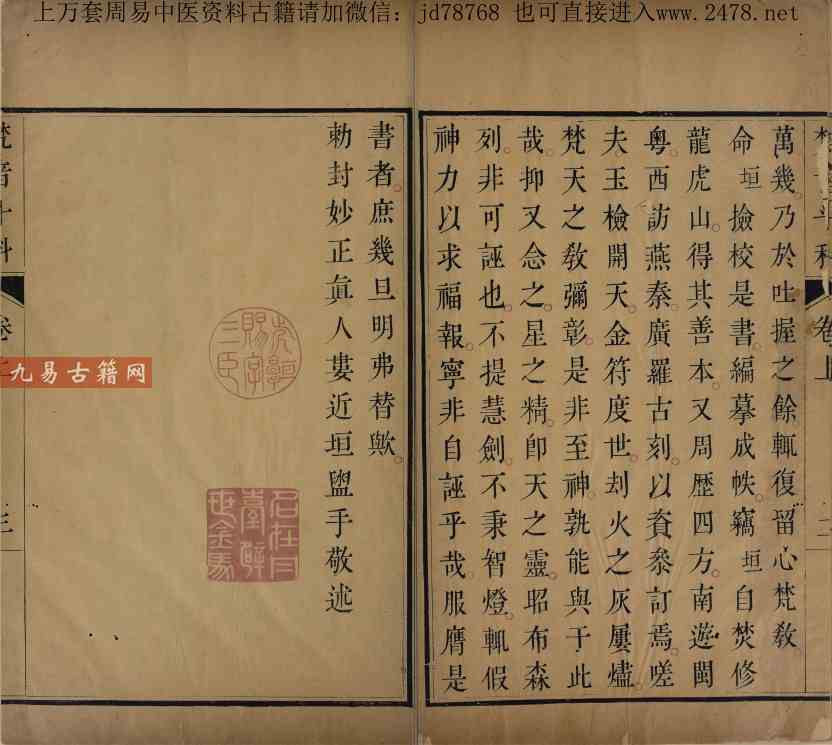 上万套周易中医资料古籍请加微信：jd78768 也可直接进入www.2478.net
萬幾。乃於吐握之餘。輒復留心梵教。
命垣撿校是書。編摹成帙。竊垣自焚修
龍虎山。得其善本。又周歷四方。南遊閩
粵。西訪燕秦。廣羅古刻。以資叅訂焉。嗟
夫。玉檢開天。金符度世。刦火之灰屢燼。
梵天之敎彌彰。是非至神。孰能與于此
哉。抑又念之。星之精。卽天之靈。昭布森
列。非可誣也。不提慧劍。不秉智燈。輒假
神力以求福報。寧非自誣乎哉。服膺是
書者。庶幾旦明弗替歟。
勅封妙正眞人婁近垣盥手敬述
賜字
三臣
九易古籍网
卷上